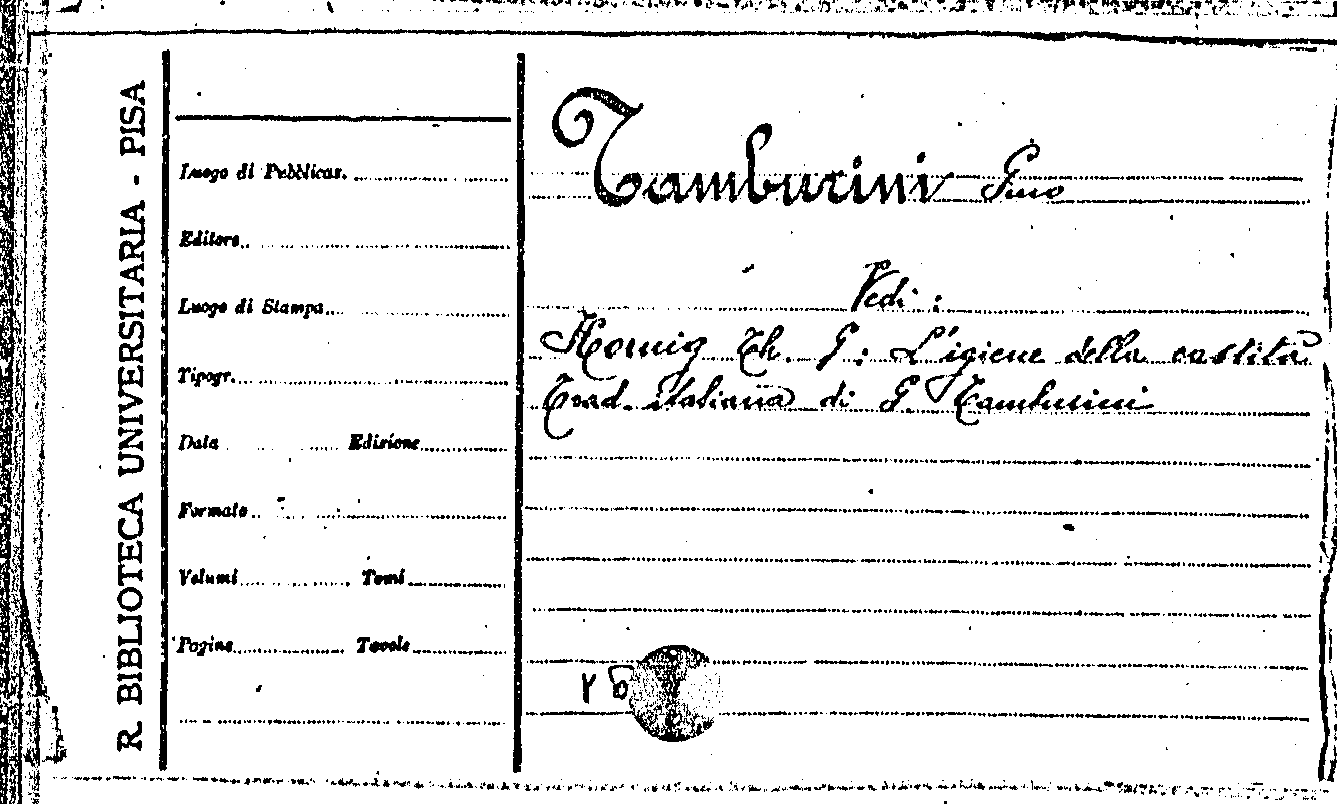 R. BIBLIOTECA UNIVERSITARIA - PISA
Luogo di Pubblicaz.
Editore
Luogo di Stampa
Tipogr.
Data Edizione
Formato
Volumi Tomi
Pagine Tavole
Tamburini Gino
Vedi :
Hornig Th. G: L'igiene della castità
Trad. italiana di G. Tamburini